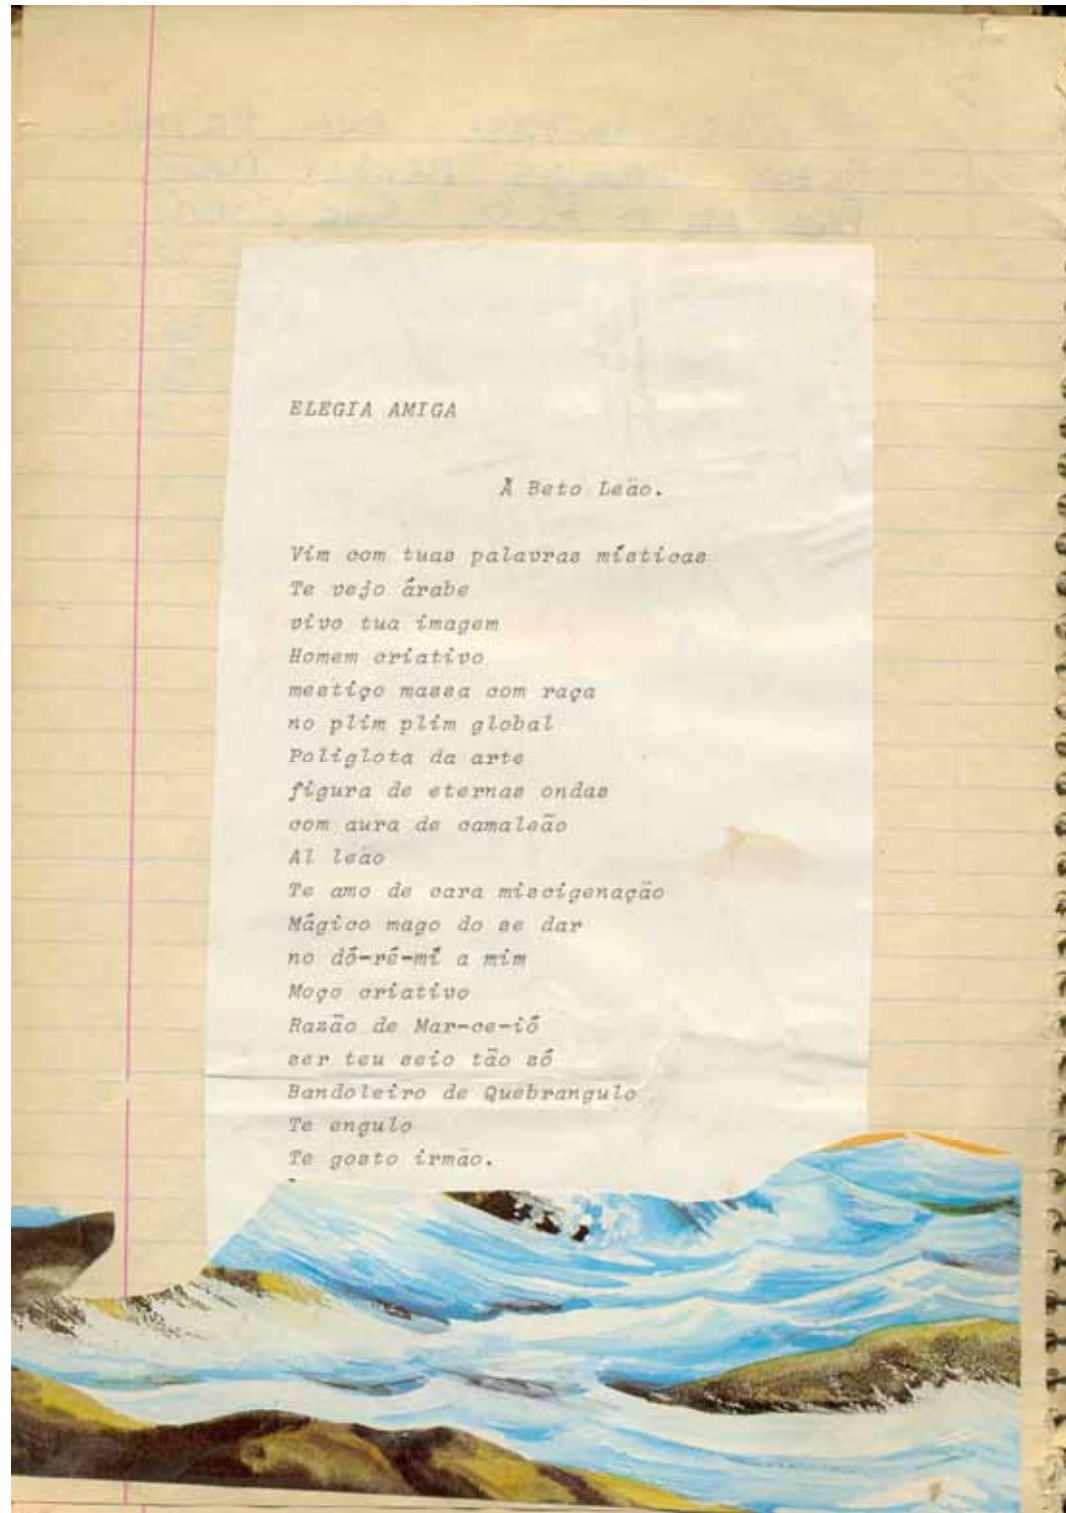 ELEGIA AMIGA
À Beto Leão.
Vim com tuas palavras místicas
Te vejo árabe
vivo tua imagem
Homem criativo
mestiço massa com raça
no plim plim global
Poliglota da arte
figura de eternas ondas
com aura de camaleão
Al leão
Te amo de cara miscigenação
Mágico mago do se dar
no dó-ré-mí a mim
Moço criativo
Razão de Mar-ce-ió
ser teu seio tão só
Bandoleiro de Quebrangulo
Te engulo
Te gosto irmão.